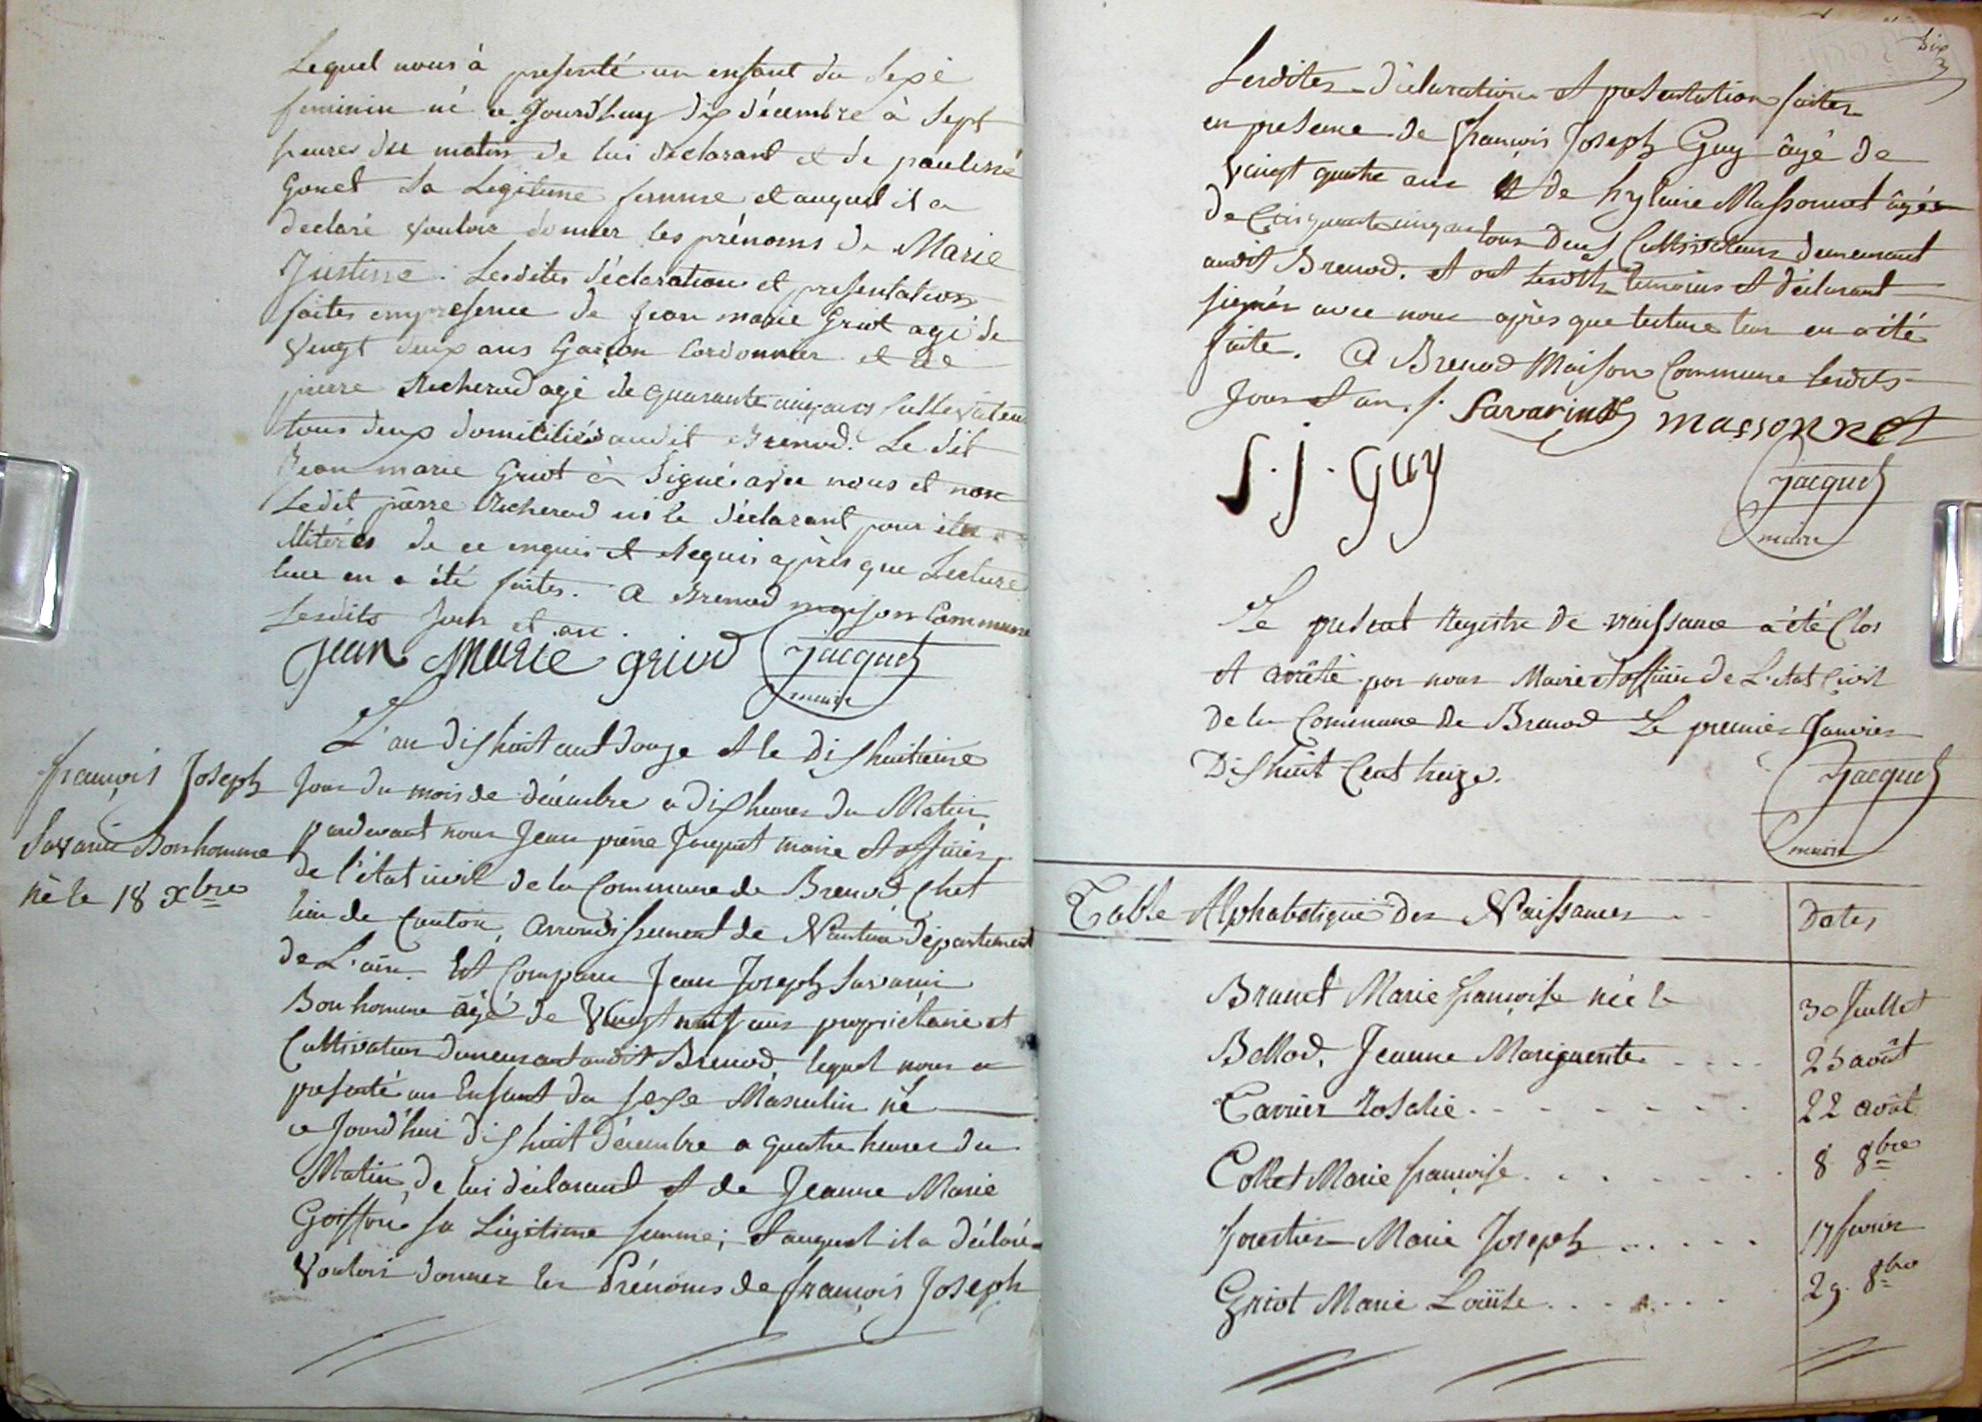 Lequel nous à presenté un enfant du Sexe
feminin né ce Jourd'huy dix décembre à Sept
heures du matin de lui declarant et de paulisse
Gonet Sa Legitime femme et auquel il a
declaré vouloir donner les prénoms de Marie
Justine. Lesdites déclaration et presentation
faites en presence de Jean marie Griot agé de
vingt deux ans Garçon Cordonnier et de
pierre Richerod agé de quarante cinq ans Cultivateur
tous deux domiciliés audit Brenod. Le dit
Jean marie Griot à Signé avec nous et non
Ledit pierre Richerod ni le déclarant pour être
illitérés de ce enquis et Requis après que Lecture
leur en a été faites. A Brenod maison Commune
Lesdits Jour et an.
Jean Marie Griod Jacquet
maire
L'an dix huit cent douze et le dix huitieme
François Joseph
Jour du mois de décembre a dix heures du Matin
Savarin Bonhomme
pardevant nous Jean pierre Jacquet maire et officier
né le 18 xbre
de l'état civil de la Commune de Brenod, Chef
lieu de Canton, arrondissement de Nantua département
de L'ain. Est Comparu Jean Joseph Savarin
Bonhomme âgé de Vingt neuf ans propriétaire et
Cultivateur demeurant audit Brenod, lequel nous a
presenté un Enfant du Sexe Masculin né
ce Jourd'hui dix huit décembre a quatre heures du
Matin, de lui déclarant et de Jeanne Marie
Goiffon sa Légitime femme; et auquel il a déclaré
Vouloir donner les Prénoms de François Joseph
dix
Lesdites déclaration et presentation faites
en presence de François Joseph Guy âgé de
Vingt quatre ans et de hylaire Massonnet âgés
de Cinquante cinq ans tous deux Cultivateurs demeurant
audit Brenod. et ont Lesdits temoins et déclarant
signés avec nous après que lecture leur en a été
faite. A Brenod Maison Commune Lesdits
Jour et an. /. Savarin massonnet
f. j. Guy
Jacquet
maire
Le present Registre de naissance a été Clos
et arrêté par nous Maire et officier de L'etat Civil
de la Commune de Brenod Le premier Janvier
Dix huit Cent treize.
Jacquet
maire
Table Alphabetique des Naissances
Dates
Brunet Marie françoise née le 30 Juillet
Bollod, Jeanne Marguerite 25 août
Carrier Rosalie 22 août
Collet Marie françoise 8 8bre
forestier Marie Joseph 17 fevrier
Griot Marie Louïse 29. 8bre